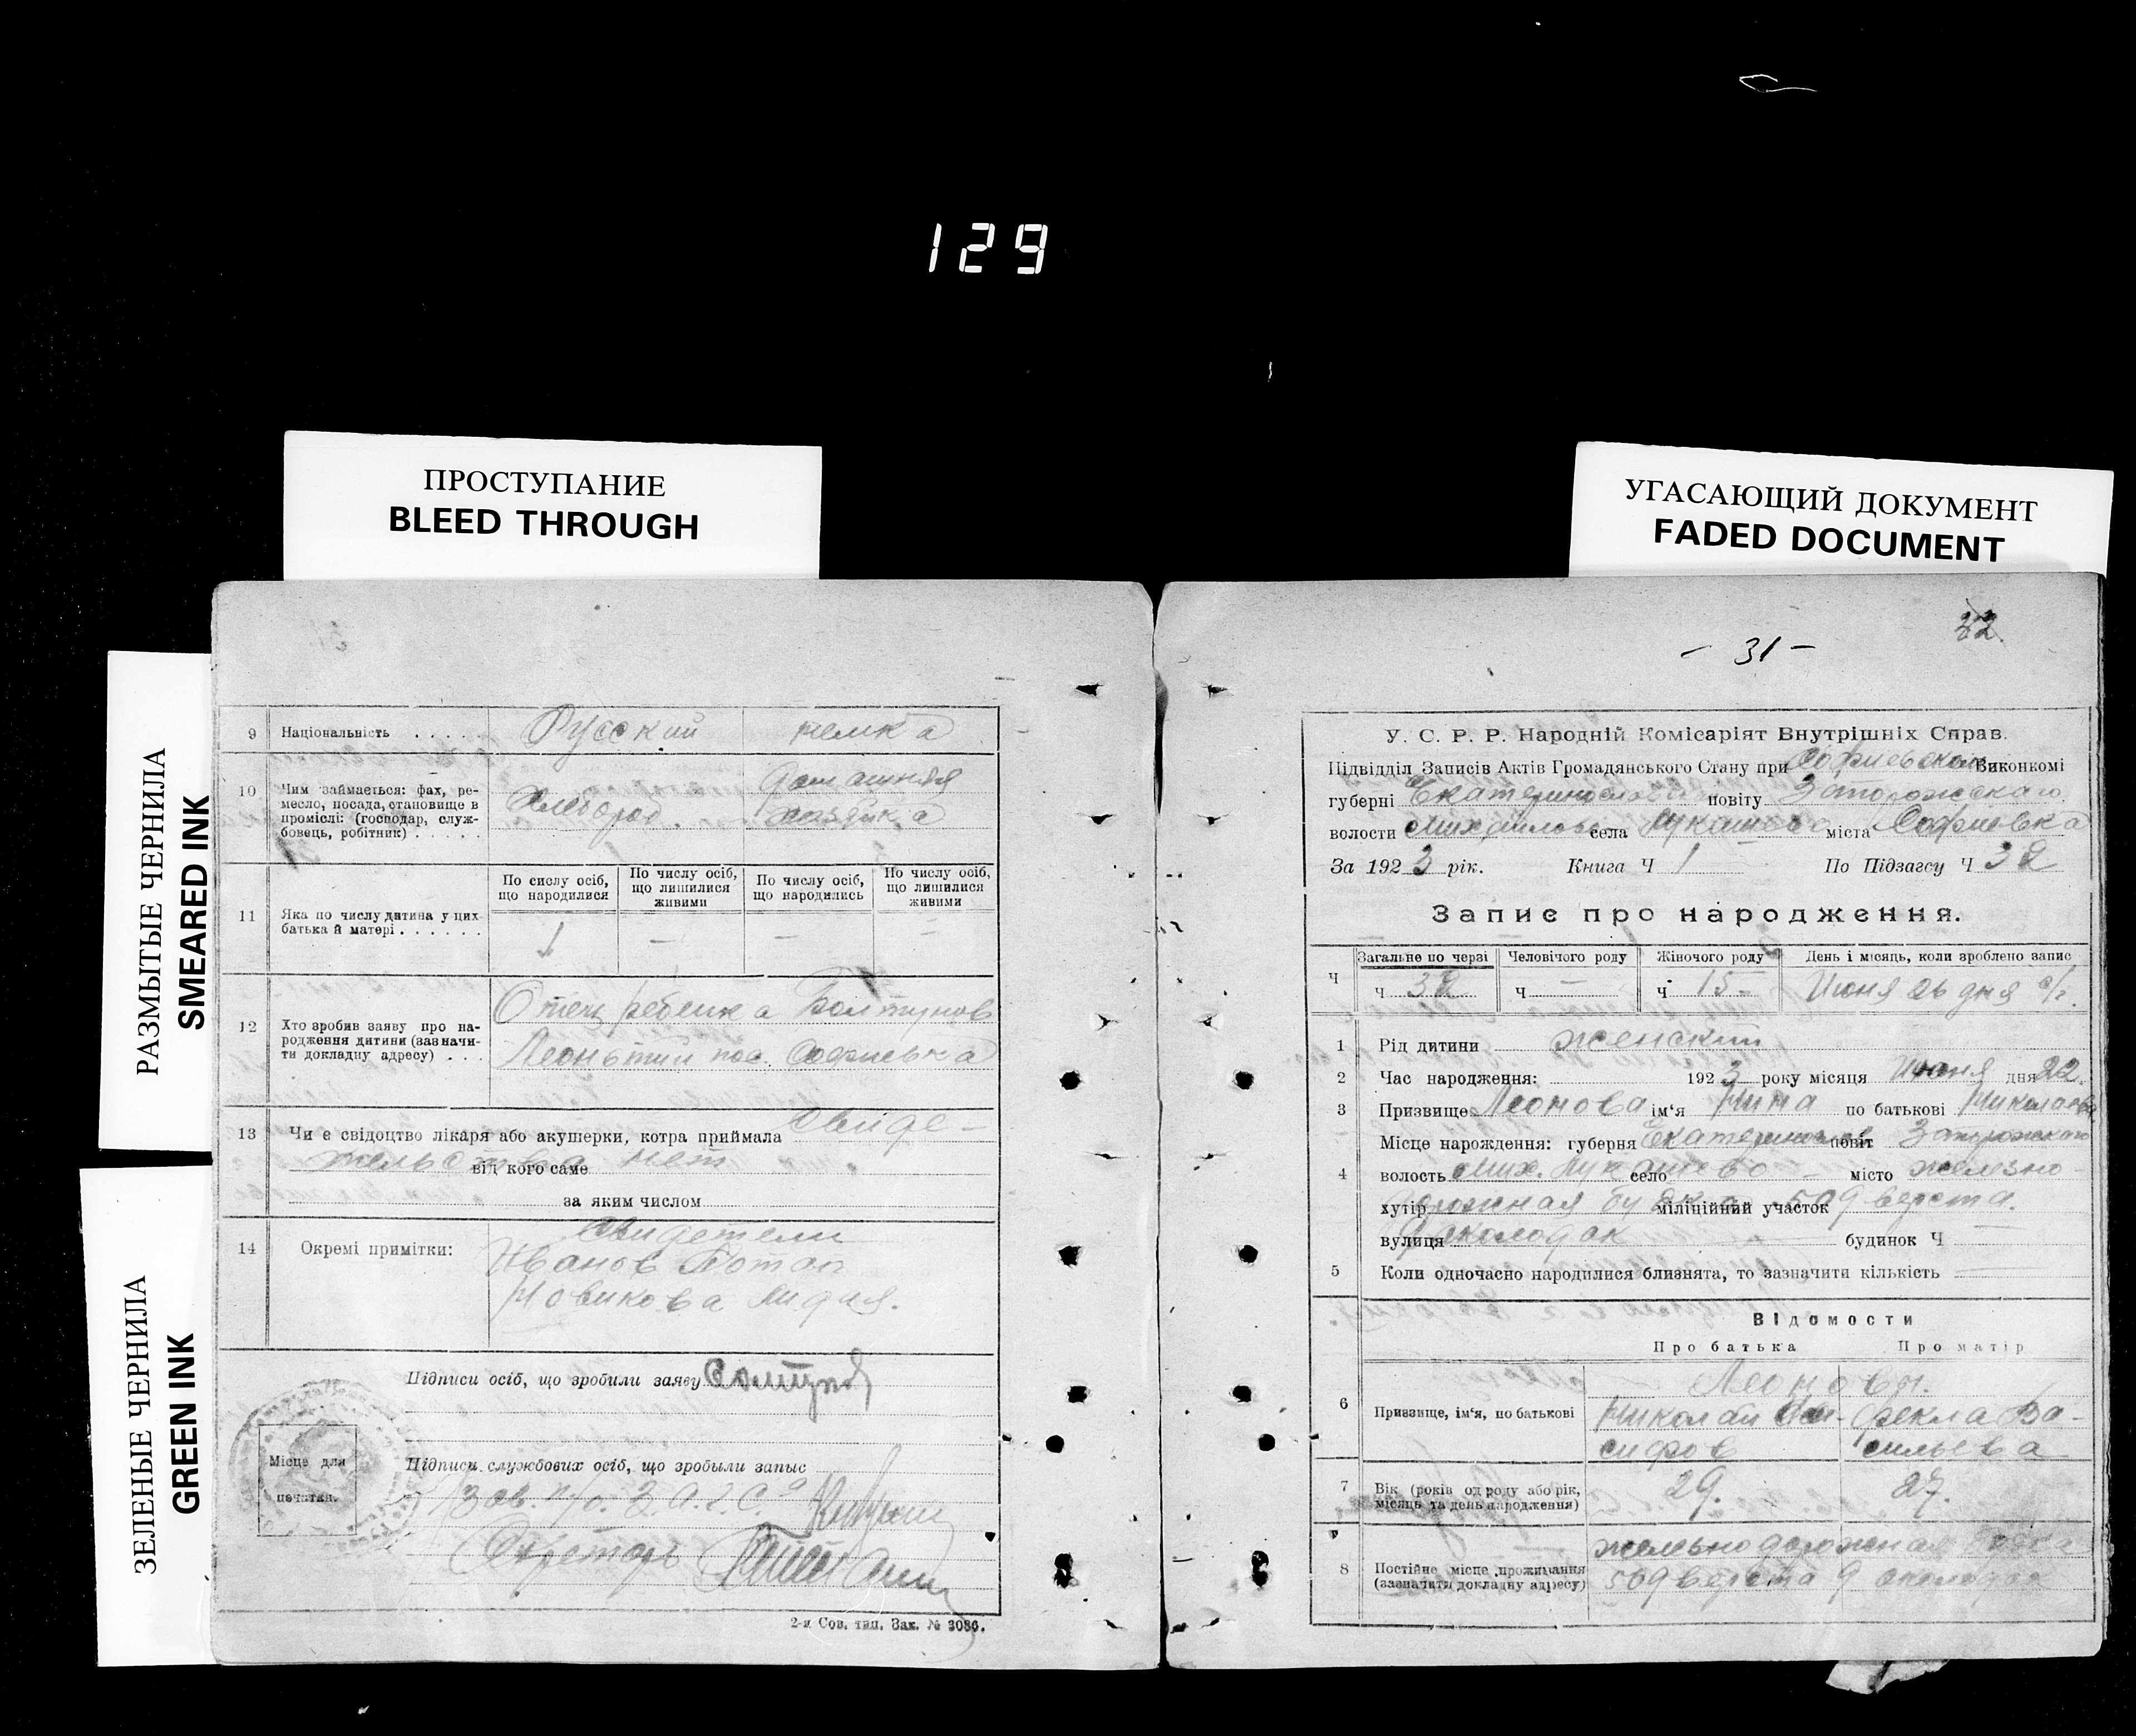 129
ПРОСТУПАНИЕ
BLEED THROUGH
УГАСАЮЩИЙ ДОКУМЕНТ
FADED DOCUMENT
РАЗМЫТЫЕ ЧЕРНИЛА
SMEARED INK
ЗЕЛЕНЫЕ ЧЕРНИЛА
GREEN INK
9 Національність . . . . Русский немка
10 Чим займається: фах, ре-
месло, посада, становище в
промислі: (господар, служ-
бовець, робітник) . . . . .
Хлебороб. домашняя
хозяйка
11 Яка по числу дитина у цих
батька й матері . . . . . .
По сислу осіб,
що народилися
По числу осіб,
що лишилися
живими
По числу осіб,
що народились
По числу осіб,
що лишилися
живими
1 — — —
12 Хто зробив заяву про на-
родження дитини (зазначи-
ти докладну адресу) . . .
Отец ребенка Болтунов
Леонтий пос. Софиевка
13 Чи є свідоцтво лікаря або акушерки, котра приймала свиде-
тельства нет
від кого саме
за яким числом
14 Окремі примітки:
Свидетели
Иванов Потап
Новикова Лидия.
Підписи осіб, що зробили заяву
Місце для
печатки.
Підписи службових осіб, що зробыли запыс
Зав. П/о. З.А.Г.С.а
Секретарь
2-я Сов. тип. Зак. № 3086.
22.
- 31 -
У. С. Р. Р. Народній Комісаріят Внутрішніх Справ.
Підвідділ Записів Актів Громадянського Стану при Софиевском Виконкомі
губерні Екатеринослав повіту Запорожскаго
волости Михайлов села Лукашево міста Софиевка
За 1923 рік. Книга Ч 1 По Підзагсу Ч 32
Запис про народження.
Ч Загальне по черзі Человічого роду Жіночого роду День і місяць, коли зроблено запис
ч 32 ч — ч 15 - Июня 26 дня с/г.
1 Рід дитини женский
2 Час народження: 1923 року місяця Июня дня 22.
3 Призвище Леонова ім'я Нина по батькові Николаева
4 Місце нарождення: губерня повіт Запорожскаго
волость Мих. Лукашево село — місто железно-
дорожная будка 509 верста.
хутір міліційний участок
вулиця 9 околодок будинок Ч —
5 Коли одночасно народилися близнята, то зазначити кількість —
Відомости
Про батька Про матір
6 Призвище, ім'я, по батькові
Леоновы.
Николай Оси- Фекла Ва-
сифов сильева
7 Вік (років од роду або рік,
місяць та день народження)
29. 27.
8 Постійне місце проживання
(зазначити докладну адресу)
железнодорожная будка
509 верста 9 околодок